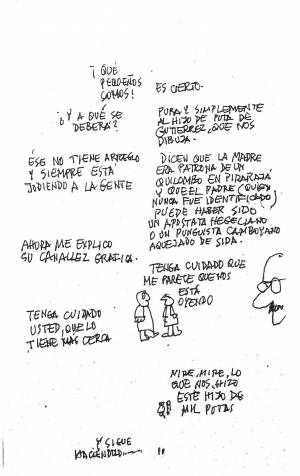 ¡QUÉ
PEQUEÑOS
SOMOS!
ES CIERTO.
¿Y A QUÉ SE
DEBERÁ?
PURA Y SIMPLEMENTE
AL HIJO DE PUTA DE
GUTIERREZ, QUE NOS
DIBUJA.
ÉSE NO TIENE ARREGLO
Y SIEMPRE ESTÁ
JODIENDO A LA GENTE
DICEN QUE LA MADRE
ERA PATRONA DE UN
QUILOMBO EN PIRARAJÁ
Y QUE EL PADRE (QUIEN
NUNCA FUE IDENTIFICADO)
PUEDE HABER SIDO
UN APÓSTATA HEGELIANO
O UN PUNGUISTA CAMBOYANO
AQUEJADO DE SIDA.
AHORA ME EXPLICO
SU CANALLEZ GRÁFICA.
TENGA CUIDADO QUE
ME PARECE QUE NOS
ESTÁ
OYENDO
TENGA CUIDADO
USTED, QUE LO
TIENE MÁS CERCA
MIRE, MIRE, LO
QUE NOS HIZO
ESTE HIJO DE
MIL PUTAS
Y SIGUE
HACIÉNDOLO